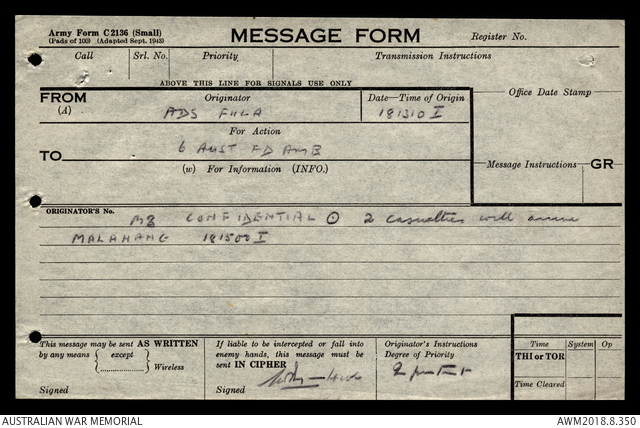 Army Form C2136 (Small)
(Pads of 100) (Adapted Sept. 1943)
MESSAGE FORM
Register No.
Call Srl. No. Priority Transmission Instructions
ABOVE THIS LINE FOR SIGNALS USE ONLY
FROM
(A)
Originator
ADS
Date—Time of Origin
181310 I
Office Date Stamp
For Action
TO
6 AUST FD AMB
(w) For Information (INFO.)
Message Instructions GR
ORIGINATOR'S No.
M3 CONFIDENTIAL ⊙ 2 casualties will arrive
MALAHANG 181500 I
This message may be sent AS WRITTEN
by any means { except }
Wireless
Signed
If liable to be intercepted or fall into
enemy hands, this message must be
sent IN CIPHER
Signed
Originator's Instructions
Degree of Priority
Time System Op
THI or TOR
Time Cleared
AUSTRALIAN WAR MEMORIAL
AWM2018.8.350